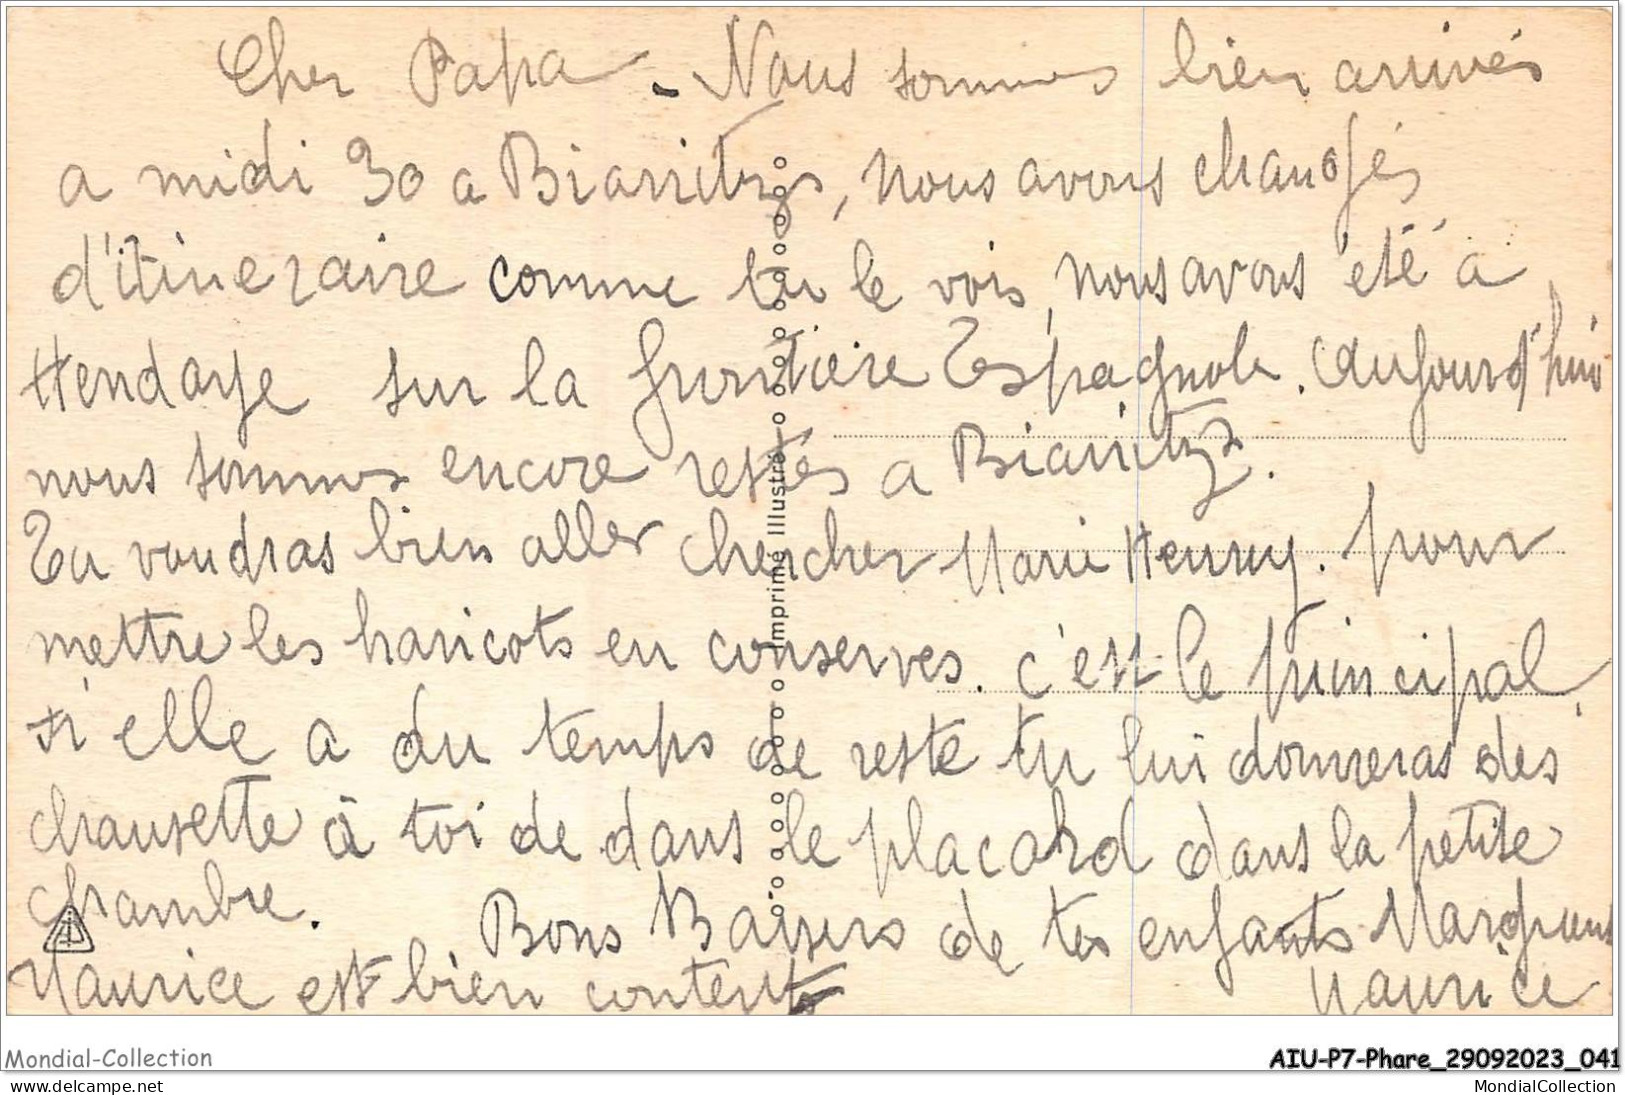 Cher Papa - Nous sommes bien arrivés
a midi 30 a Biarritz, nous avons changés
d'itineraire comme tu le vois, nous avons été à
Hendaye sur la frontiere Espagnole. Aujourd'hui
nous sommes encore restés a Biarritz.
Tu voudras bien aller chercher Marie Henry. pour
mettre les haricots en conserves. c'est le principal,
si elle a du temps de reste tu lui donneras des
chausette à toi de dans le placard dans la petite
chambre.
Bons Baisers de tes enfants
Maurice est bien contents Maurice
Imprimé Illustré
Mondial-Collection
AIU-P7-Phare_29092023_041
www.delcampe.net
MondialCollection